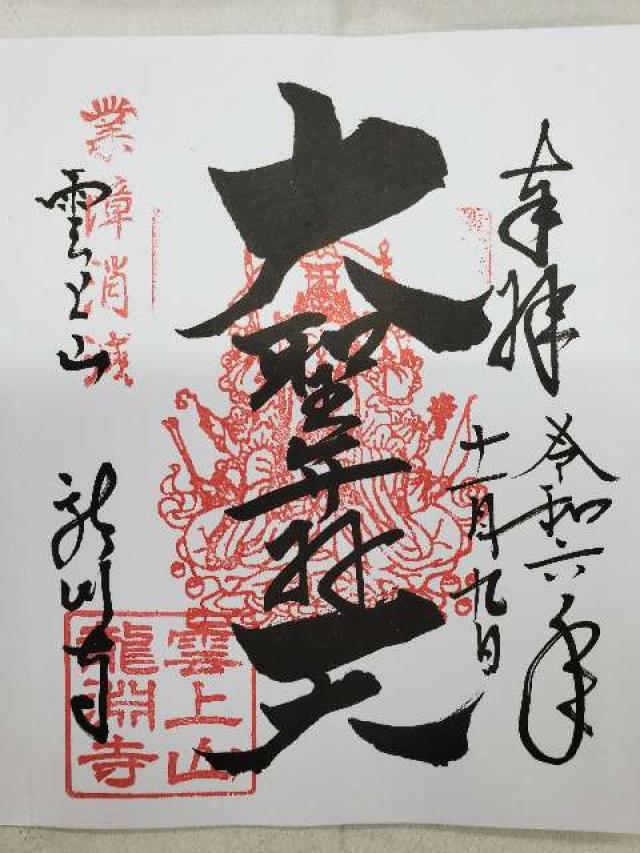 奉拝
令和六年
十一月九日
大聖弁財天
業障消滅
雲上山
龍渕寺
雲上山
龍淵寺